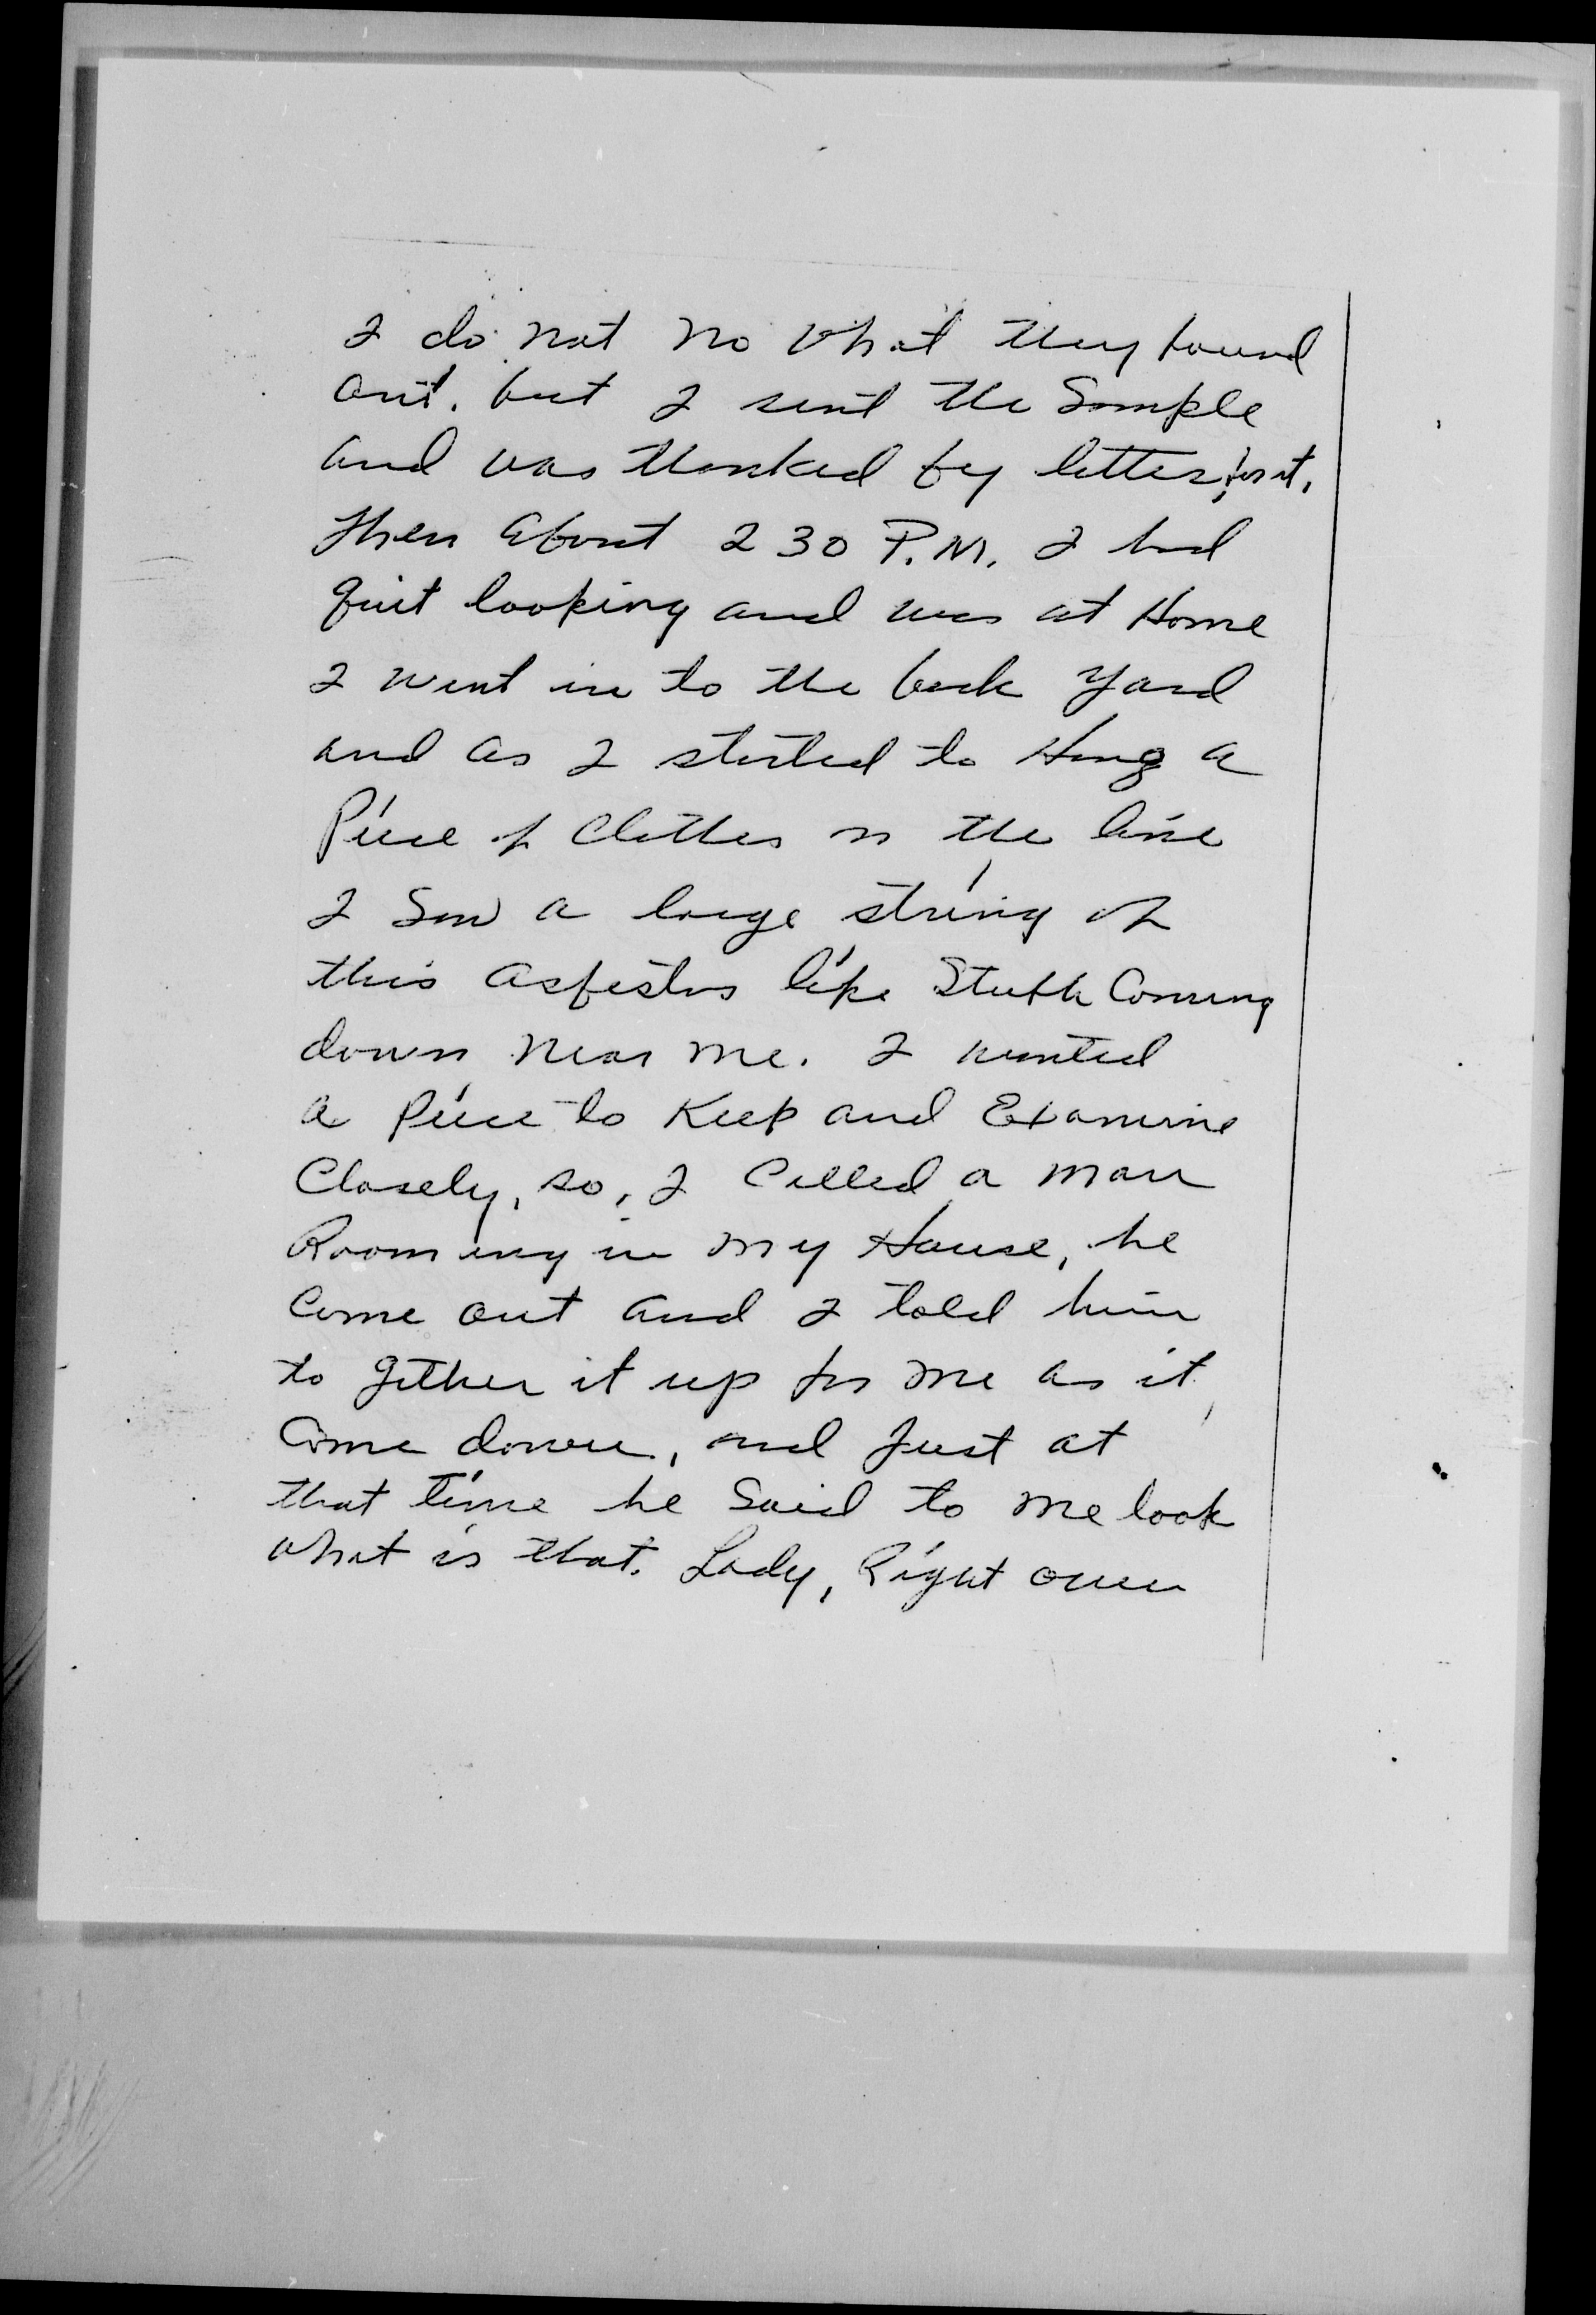 I do not no what they found
out. but I sent the Sample
and was thanked by letter, for it.
Then about 2 30 P.M. I had
quit looking and was at Home
I went in to the back yard
and as I started to Hang a
Piece of Clothes on the line
I Saw a large string of
this asbestos like Stuff Coming
down near me. I wanted
a piece to Keep and Examine
Closely, so, I Called a man
Rooming in my House, he
Come out and I told him
to gether it up for me as it
Come down, and Just at
that time he Said to me look
what is that. Lady, Right over